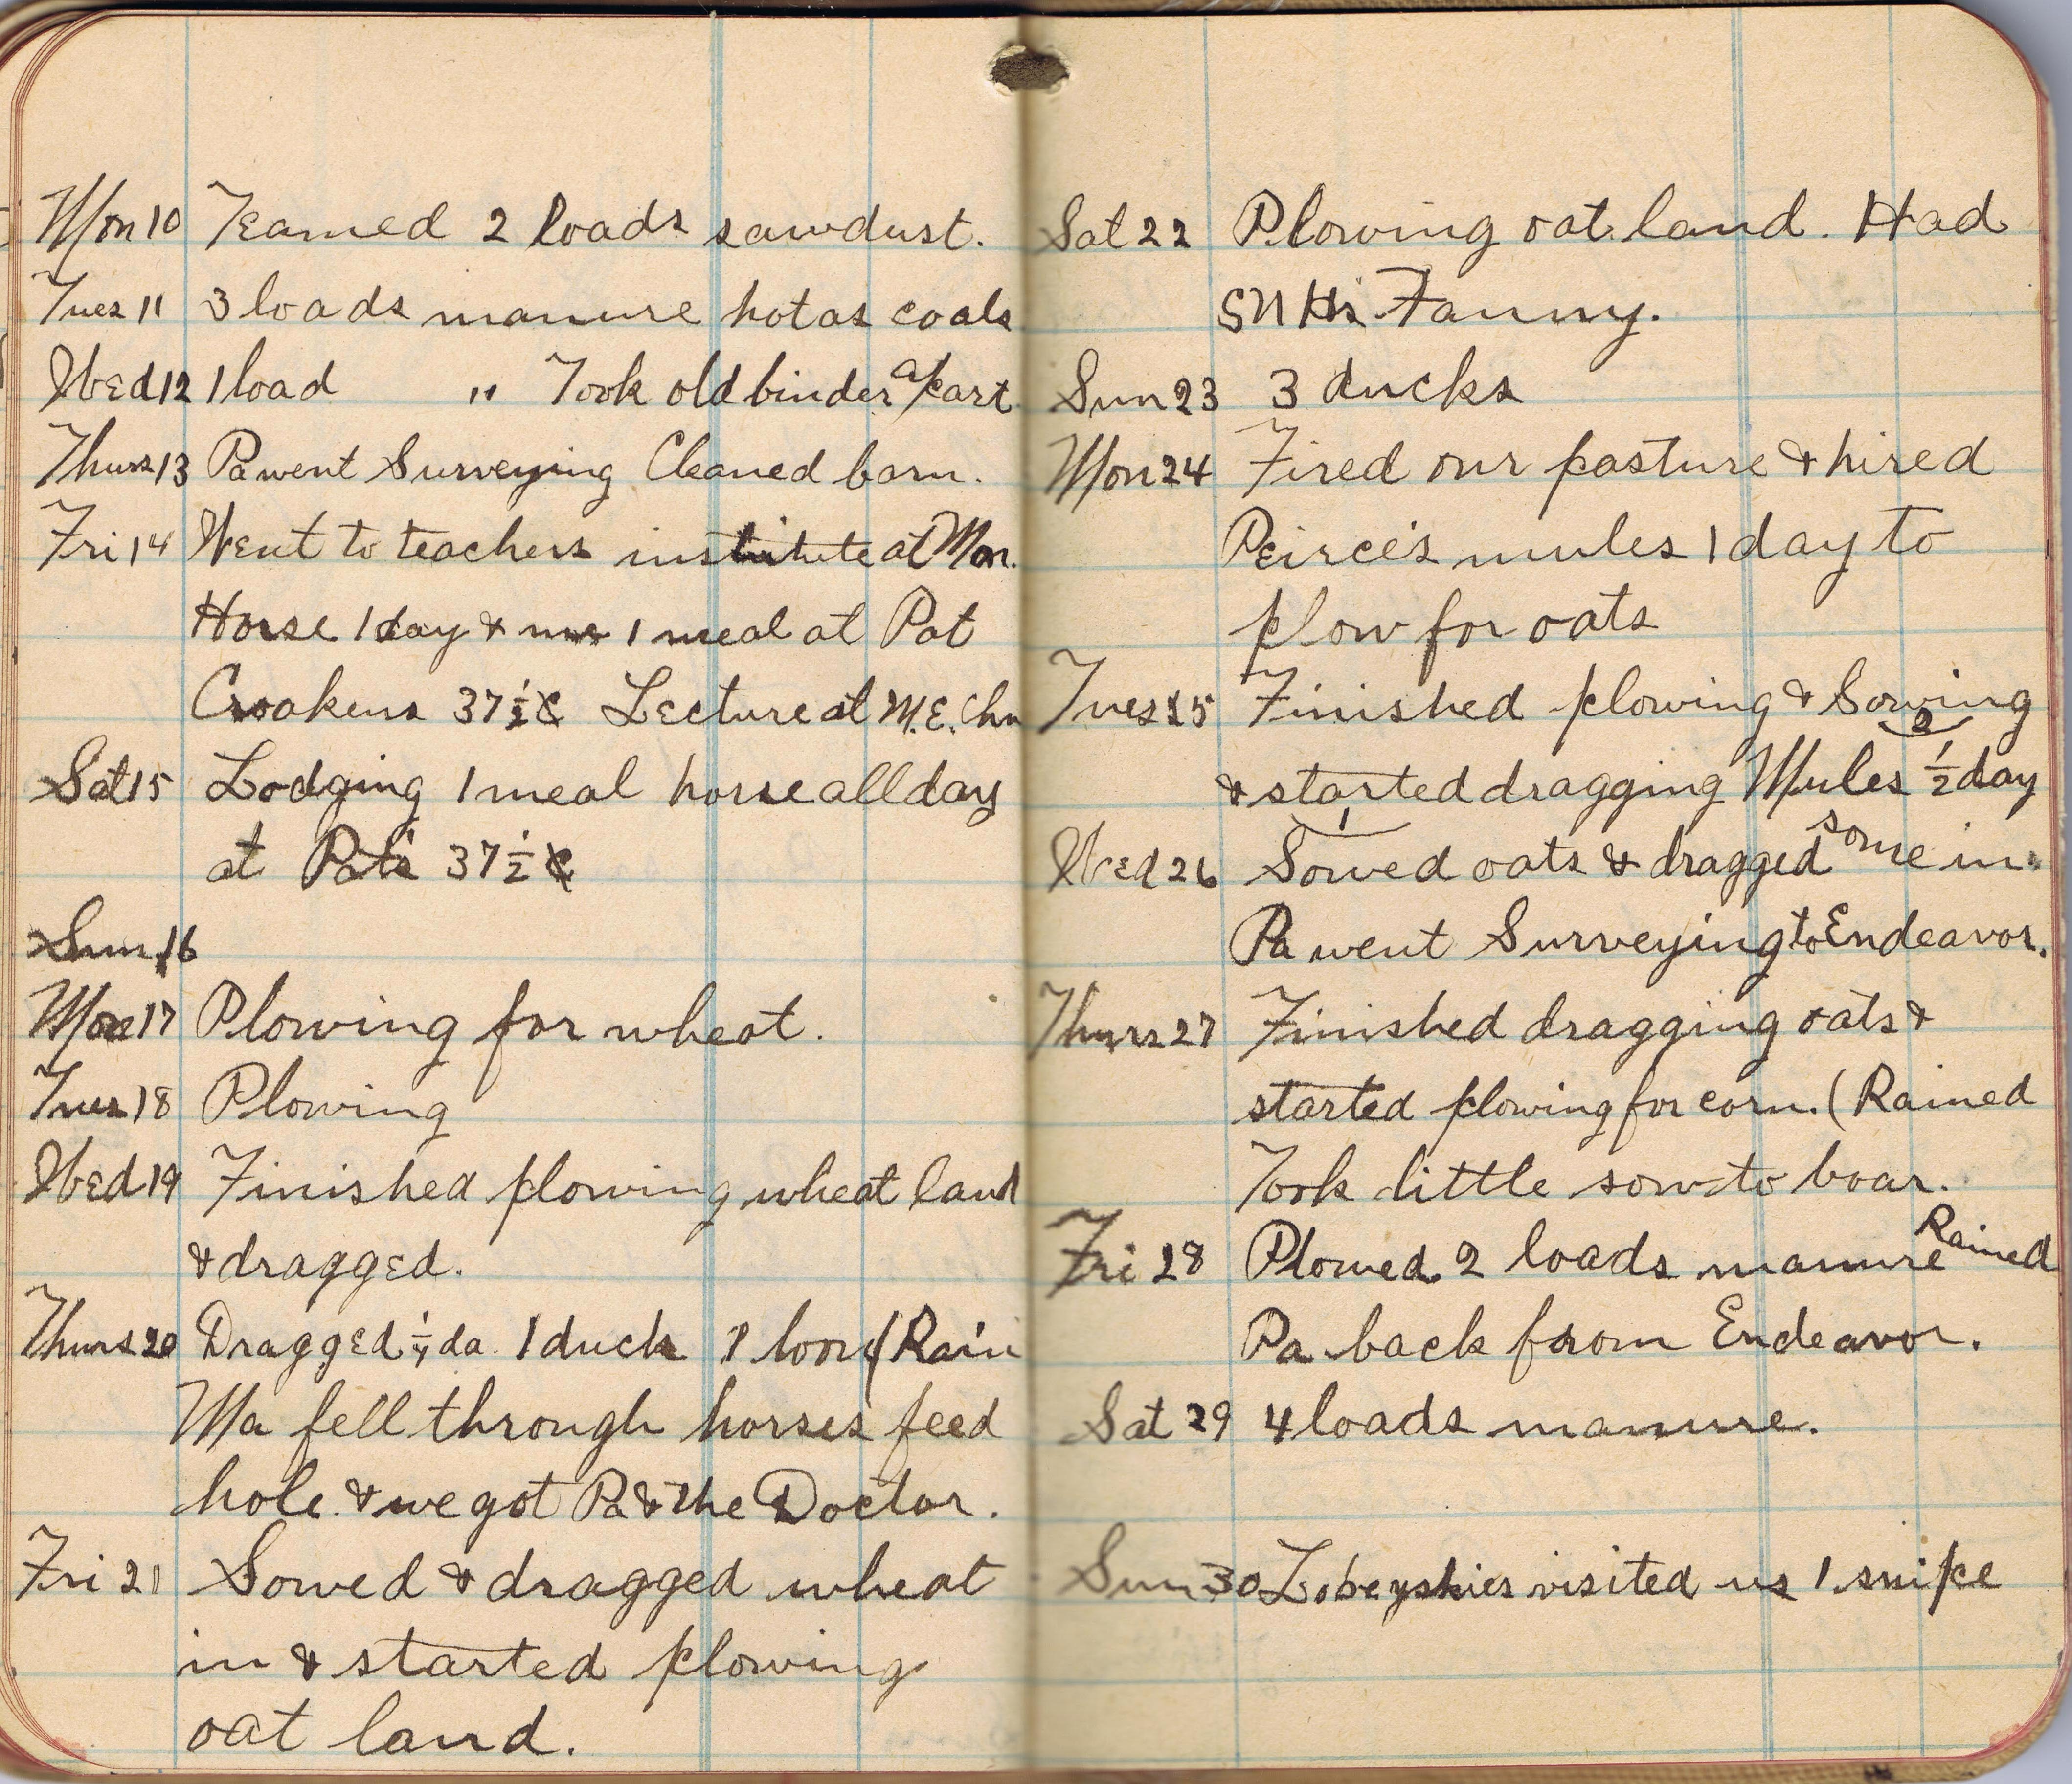 Mon 10 Teamed 2 loads sawdust.
Tues 11 3 loads manure hot as coals
Wed 12 1 load " Took old binder apart
Thurs 13 Pa went Surveying Cleaned barn.
Fri 14 Went to teachers institute at Mon.
Horse 1 day & me 1 meal at Pat
Croakens 37 1/2 ¢ Lecture at M.E. Chu
Sat 15 Lodging 1 meal horse all day
at Pat's 37 1/2 ¢
Sun 16
Mon 17 Plowing for wheat.
Tues 18 Plowing
Wed 19 Finished plowing wheat land
& dragged.
Thurs 20 Dragged da. 1 duck 1 loon (Rain
Ma fell through horses feed
hole. & we got Pa & the Doctor.
Fri 21 Sowed & dragged wheat
in & started plowing
oat land.
Sat 22 Plowing oat land. Had
Fanny.
Sun 23 3 ducks
Mon 24 Fired our pasture & hired
Peirce's mules 1 day to
plow for oats
Tues 25 Finished plowing & Sowing
2
& started dragging Mules 1/2 day
1
Wed 26 Sowed oats & dragged some in.
Pa went Surveying to Endeavor.
Thurs 27 Finished dragging oats &
started plowing for corn. (Rained
Took little sow to boar.
Fri 28 Plowed. 2 loads manure Rained
Pa back from Endeavor.
Sat 29 4 loads manure.
Sun 30 visited us 1 snipe